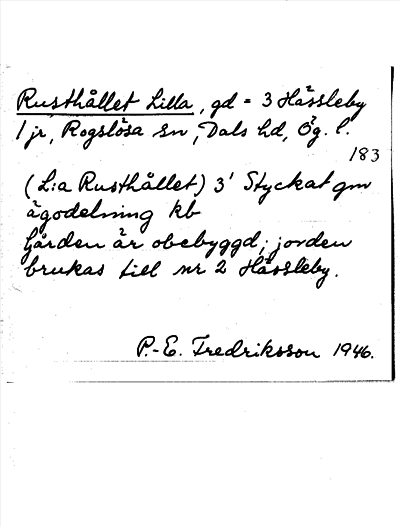 Rusthållet Lilla, gd = 3 Hässleby
1 jr, Rogslösa sn, Dals hd, Ög. l.
183
(L:a Rusthållet) 3' Styckat gm
ägodelning kb
Gården är obebyggd; jorden
brukas till nr 2 Hässleby.
P.-E. Fredriksson 1946.